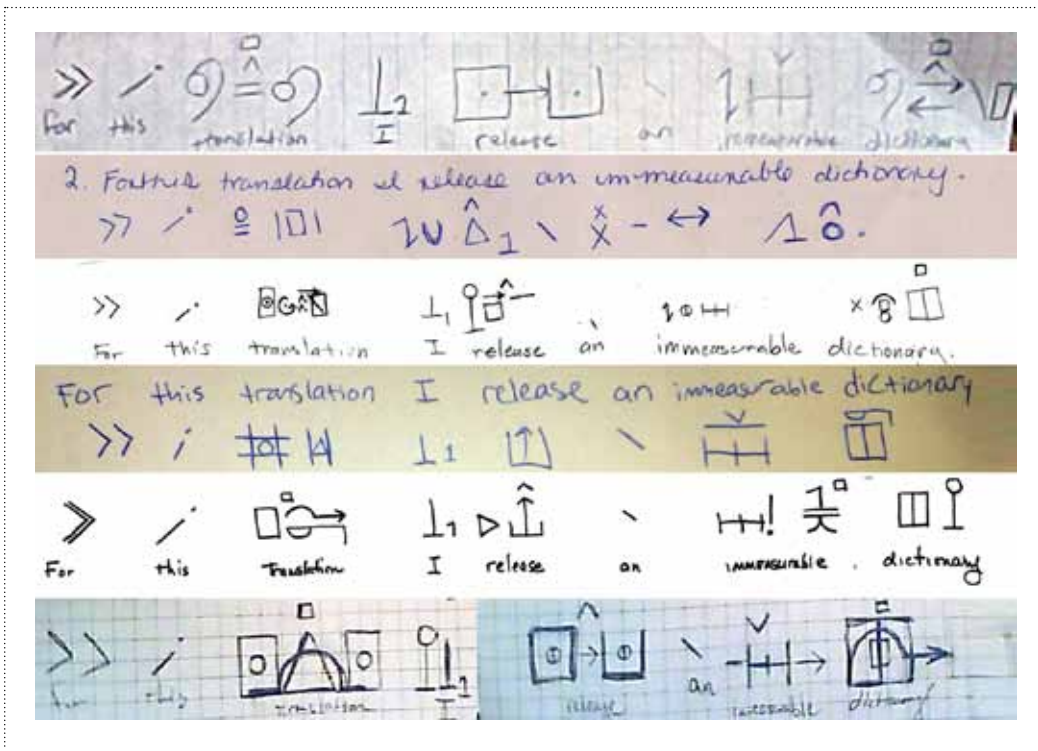 For this translation I release an immeasurable dictionary
2. For this translation I release an immeasurable dictionary.
For this translation I release an immeasurable dictionary.
For this translation I release an immeasurable dictionary
For this Translation I release an immeasurable. dictionary
for this translation I release an immeasurable dictionary